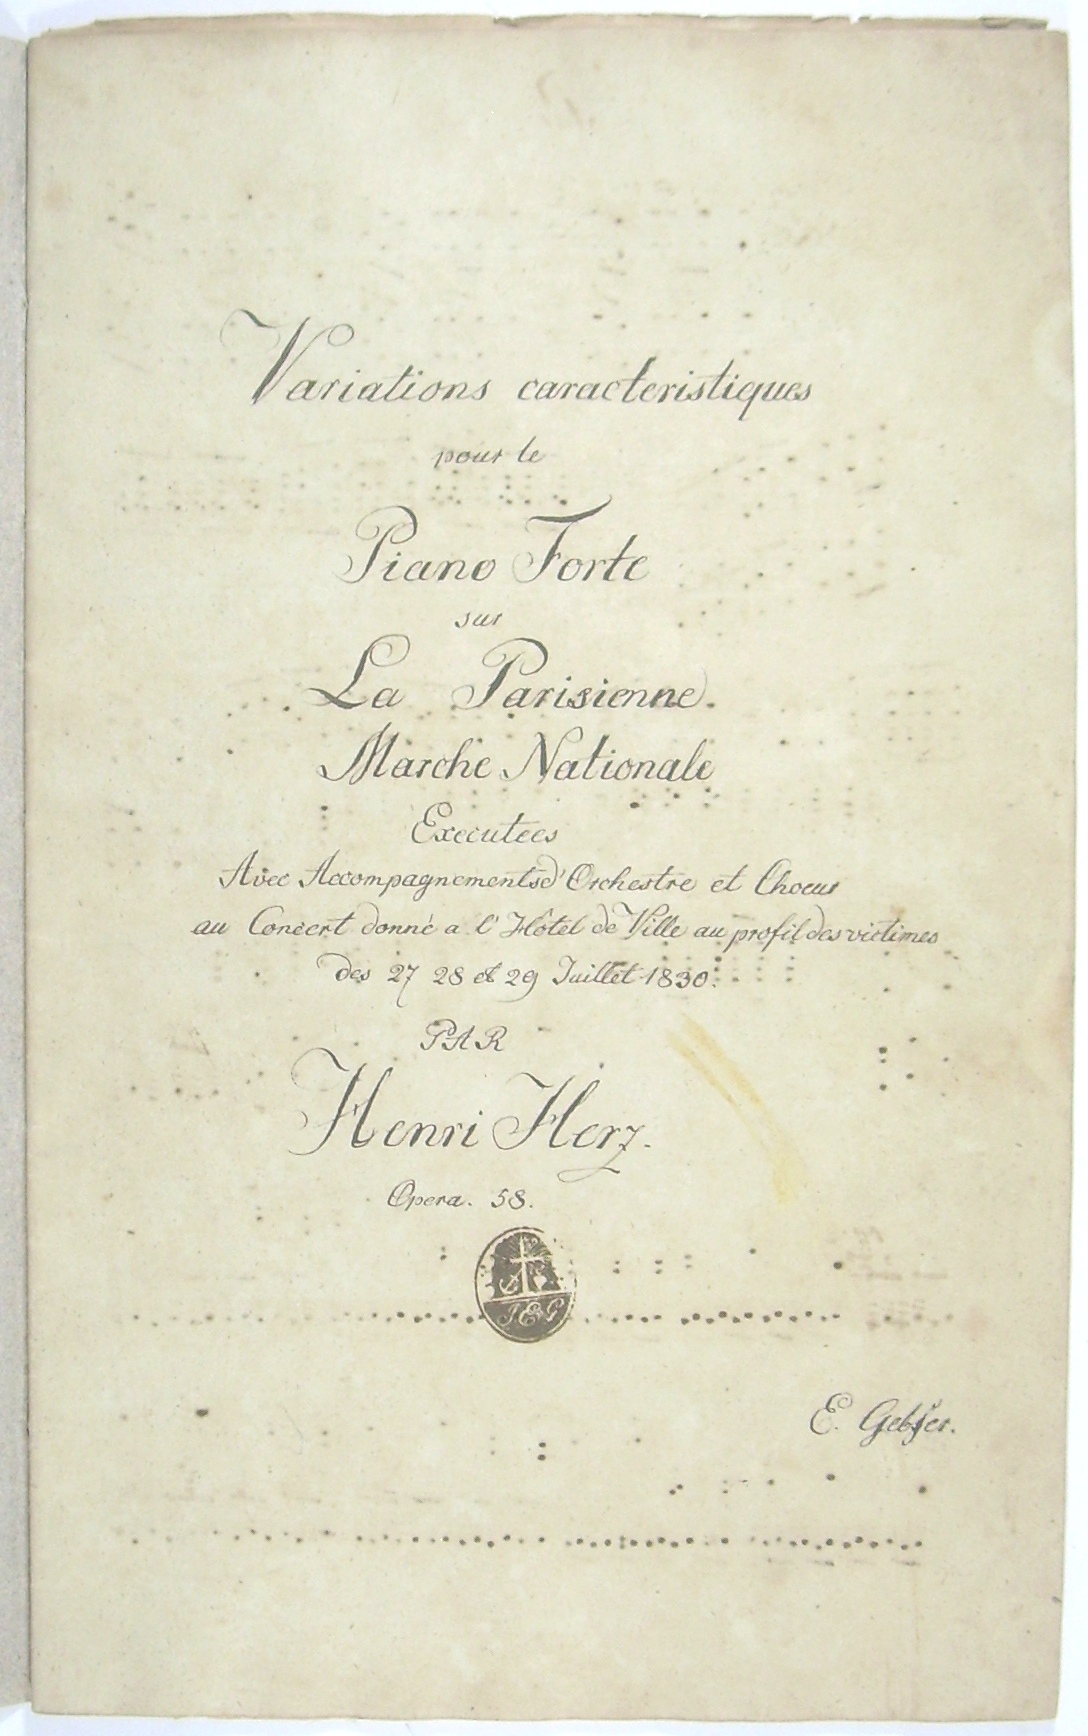 Variations caracteristiques
pour le
Piano Forte
sur
La Parisienne.
Marche Nationale
Executees
Avec Accompagnements d'Orchestre et Choeur
au Concert donné a l'Hôtel de Ville au profit des victimes
des 27 28 et 29 Juillet 1830.
PAR
Henri Herz.
Opera. 58.
J & G
E. Gebſer.